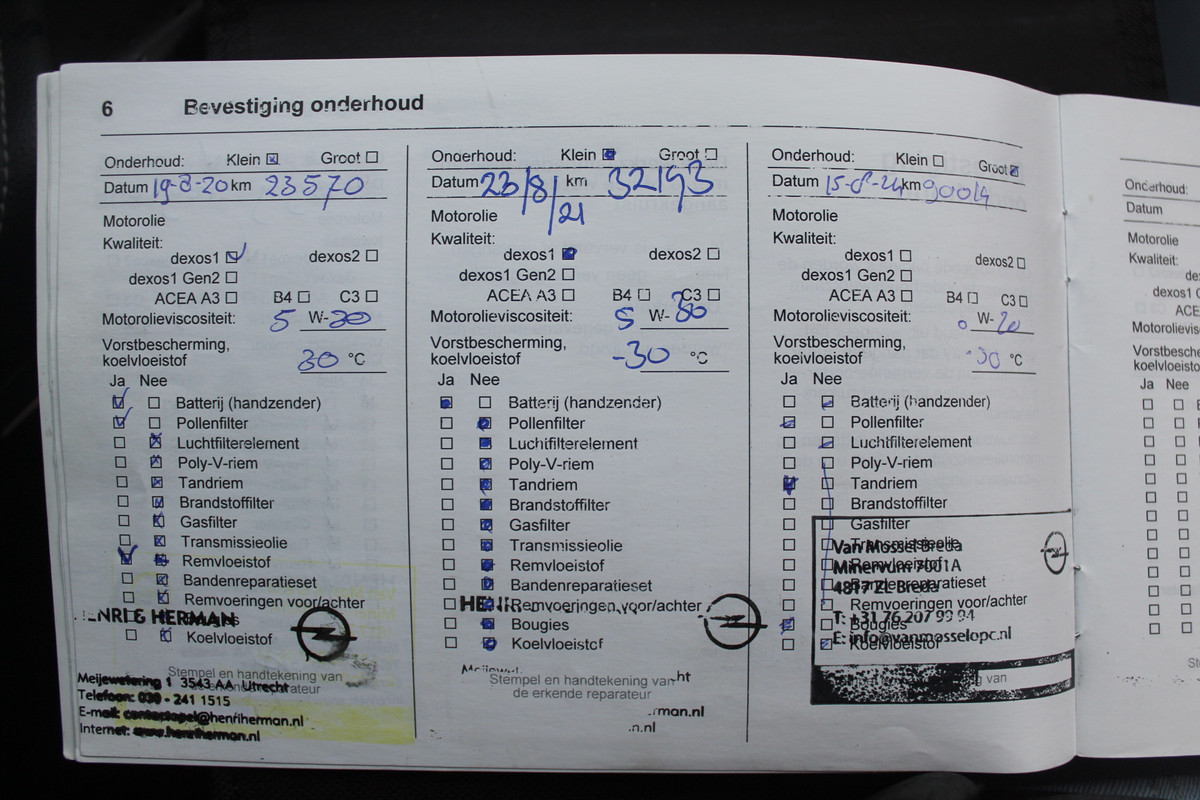 6 Bevestiging onderhoud
Onderhoud: Klein Groot
Datum 19-8-20 km 23570
Motorolie
Kwaliteit:
dexos1 dexos2
dexos1 Gen2
ACEA A3 B4 C3
Motorolieviscositeit: 5 W-30
Vorstbescherming,
koelvloeistof 30 °C
Ja Nee
Batterij (handzender)
Pollenfilter
Luchtfilterelement
Poly-V-riem
Tandriem
Brandstoffilter
Gasfilter
Transmissieolie
Remvloeistof
Bandenreparatieset
Remvoeringen voor/achter
HERMAN
Koelvloeistof
Stempel en handtekening van
Meijewetering 1 3543 AA Utrecht
Telefoon: 030 - 241 1515
E-mail: contactopel@henriherman.nl
Internet: www.henriherman.nl
Onderhoud: Klein Groot
Datum 23/8/21 km 32193
Motorolie
Kwaliteit:
dexos1 dexos2
dexos1 Gen2
ACEA A3 B4 C3
Motorolieviscositeit: 5 W-30
Vorstbescherming,
koelvloeistof -30 °C
Ja Nee
Batterij (handzender)
Pollenfilter
Luchtfilterelement
Poly-V-riem
Tandriem
Brandstoffilter
Gasfilter
Transmissieolie
Remvloeistof
Bandenreparatieset
Remvoeringen voor/achter
Bougies
Koelvloeistof
Stempel en handtekening van
de erkende reparateur
rman.nl
.n.nl
Onderhoud: Klein Groot
Datum km 90014
Motorolie
Kwaliteit:
dexos1 dexos2
dexos1 Gen2
ACEA A3 B4 C3
Motorolieviscositeit: 0 W-20
Vorstbescherming,
koelvloeistof -30 °C
Ja Nee
Batterij (handzender)
Pollenfilter
Luchtfilterelement
Poly-V-riem
Tandriem
Brandstoffilter
Gasfilter
Transmissieolie
Van Mossel Breda
Remvloeistof
Minervum 7001A
Bandenreparatieset
4817 ZL Breda
Remvoeringen voor/achter
T: +31 76 207 99 94
Bougies
E: info@vanmosselopc.nl
Koelvloeistof
van
Onderhoud:
Datum
Motorolie
Kwaliteit:
dexos1
ACE
Motorolievis
Vorstbesche
koelvloeisto
Ja Nee